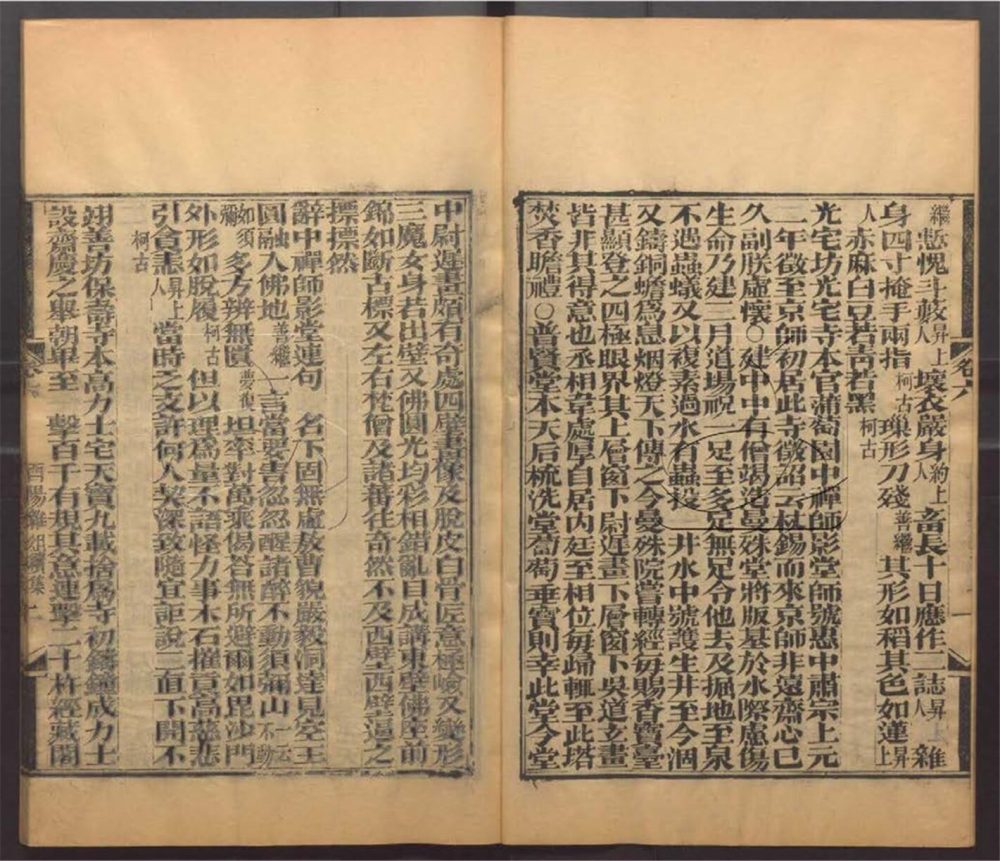 繼 慙愧斗藪昇上人 壞衣嚴身約上人 畜長十日應作二誌昇上人 雜
身四寸掩手兩指柯古 璅形刀殘善繼 其形如稻其色如蓮昇上
人 赤麻白豆若青若黑柯古
光宅坊光宅寺本官蒲萄園中禪師影堂師號惠中肅宗上元
二年徵至京師初居此寺徵詔云杖錫而來京師非遠齋心已
久副朕虛懷○建中中有僧竭造曼殊堂將版基於水際慮傷
生命乃建三月道場祝一足至多足無足令他去及掘地至泉
不遇蟲蟻又以複素過水有蟲投一井水中號護生井至今涸
又鑄銅蟾爲息烟燈天下傳之今曼殊院嘗轉經每賜香寶臺
甚顯登之四極眼界其上層窗下尉遲畫下層窗下吳道玄畫
皆非其得意也丞相韋處厚自居內廷至相位每歸輒至此塔
焚香瞻禮○普賢堂本天后梳洗堂萄萄垂實則幸此堂今堂
卷六
一
中尉遲畫頗有奇處四壁畫像及脫皮白骨匠意極嶮又變形
三魔女身若出壁又佛圓光均彩相錯亂目成講東壁佛座前
錦如斷古標又左右梵僧及諸蕃往奇然不及西壁西壁逼之
摽摽然
辭中禪師影堂連句 名下固無虛敖曹貌嚴毅洞達見空王
圓融入佛地善繼 一言當要害忽忽醒諸醉不動須彌山一云不動
如須彌 多方辨無匱夢復 坦率對萬乘偈答無所避爾如毘沙門
外形如脫履柯古 但以理爲量不語怪力事木石摧貢高慈悲
引貪恚昇上人 當時之支許何人契深致隨宜詎說三直下開不
二柯古
翊善坊保壽寺本高力士宅天寶九載捨爲寺初鑄鐘成力士
設齋慶之舉朝畢至一擊百千有規其意連擊二十杵經藏閣
酉陽雜俎續集 一